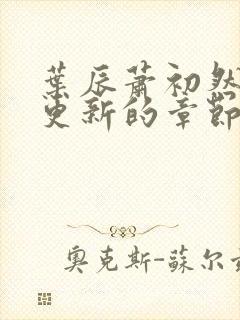 葉辰蕭初然
更新的章節
奧克斯-蘇尔